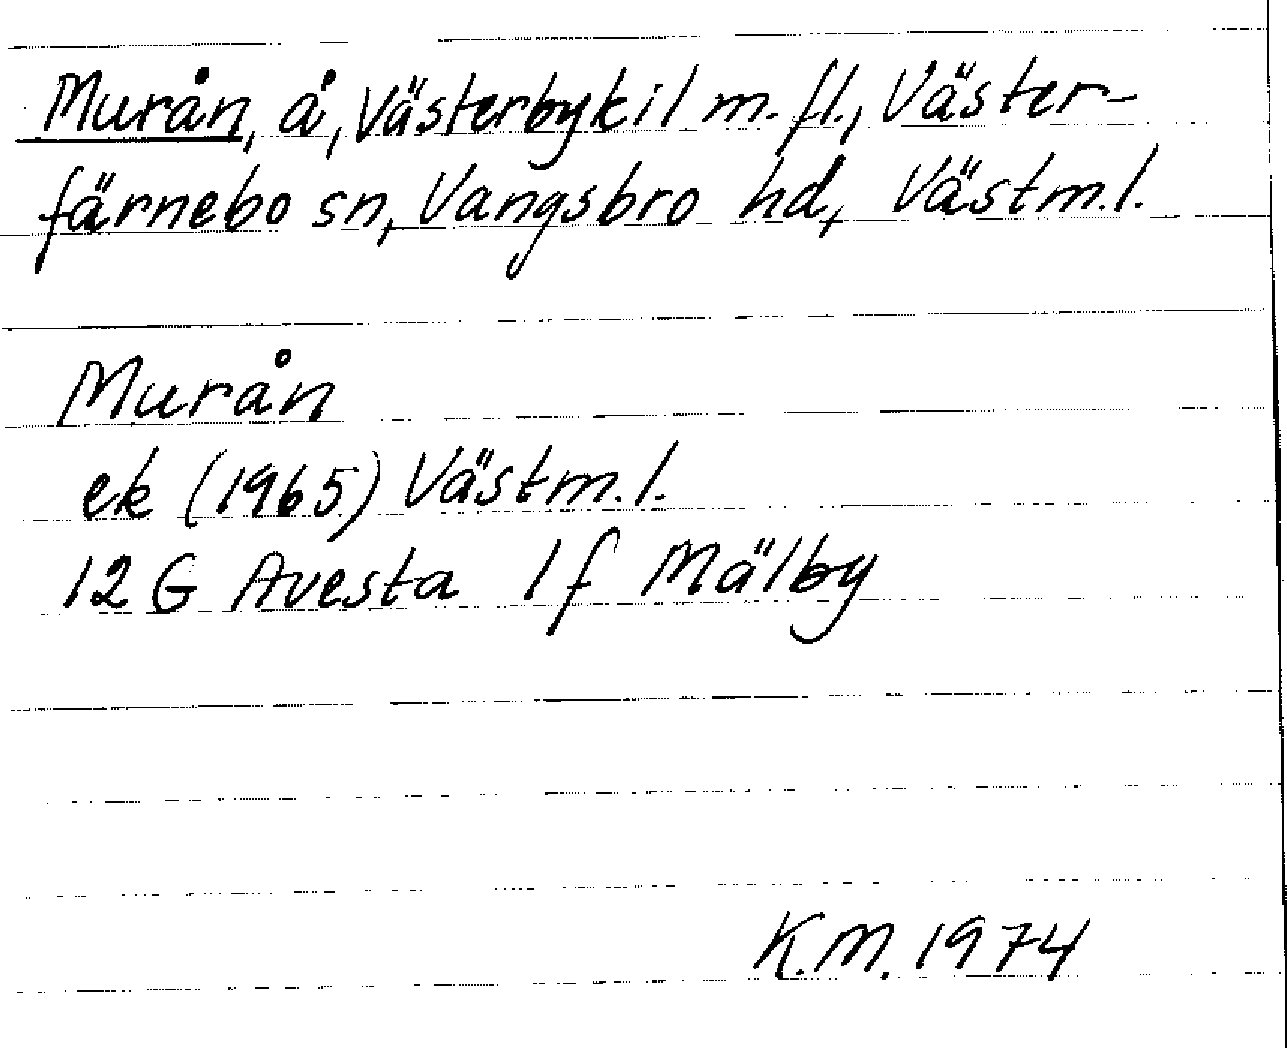 Murån, å, Västerbykil m. fl., Väster-
färnebo sn, Vangsbro hd, Västm.l.
Murån
ek (1965) Västm.l.
12 G Avesta 1 f Mälby
K.M. 1974